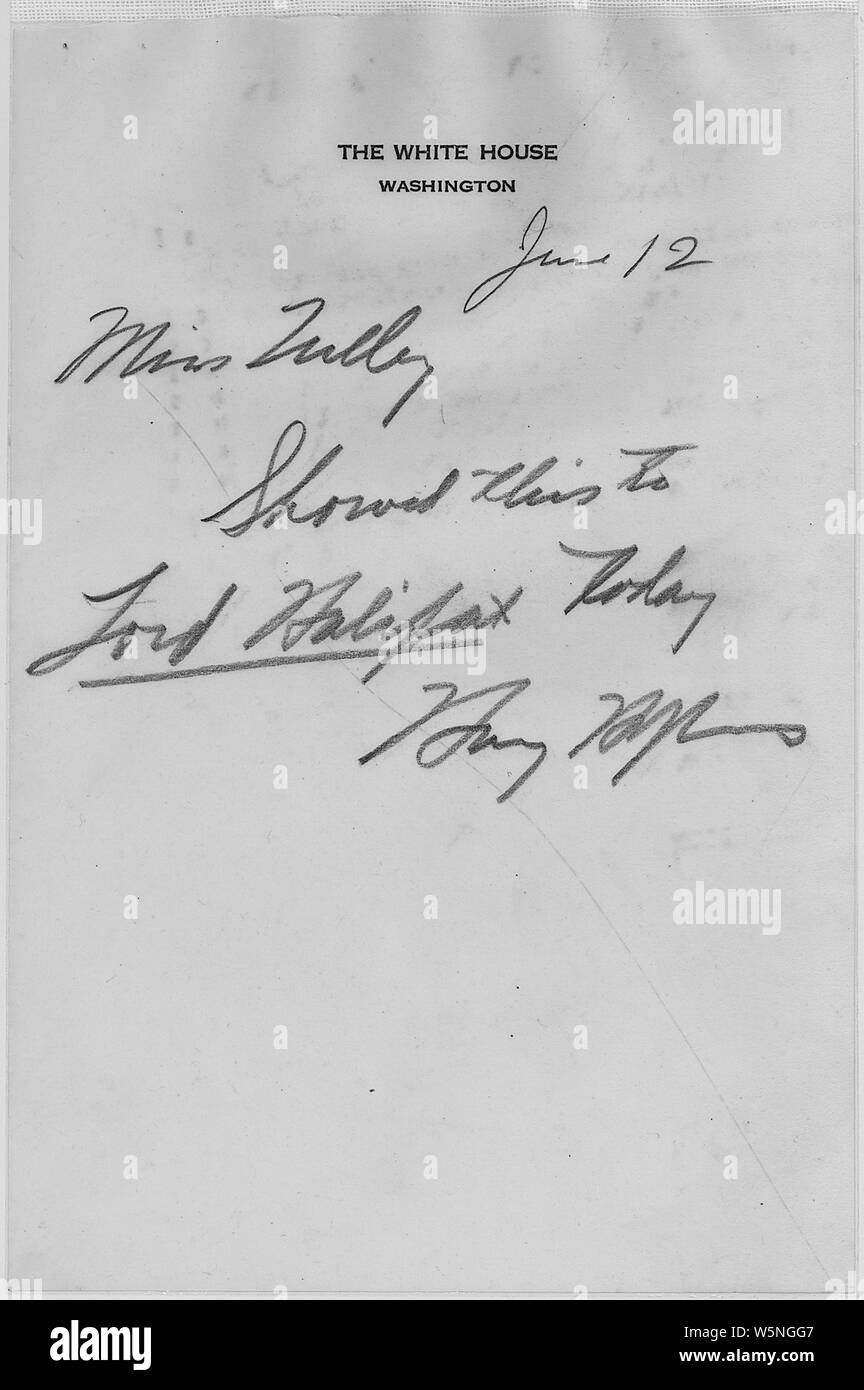 THE WHITE HOUSE
WASHINGTON
June 12
Miss Tulley
Showed this to
Lord Halifax today
Harry Hopkins
alamy
a
alamy
Image ID: W5NGG7
www.alamy.com